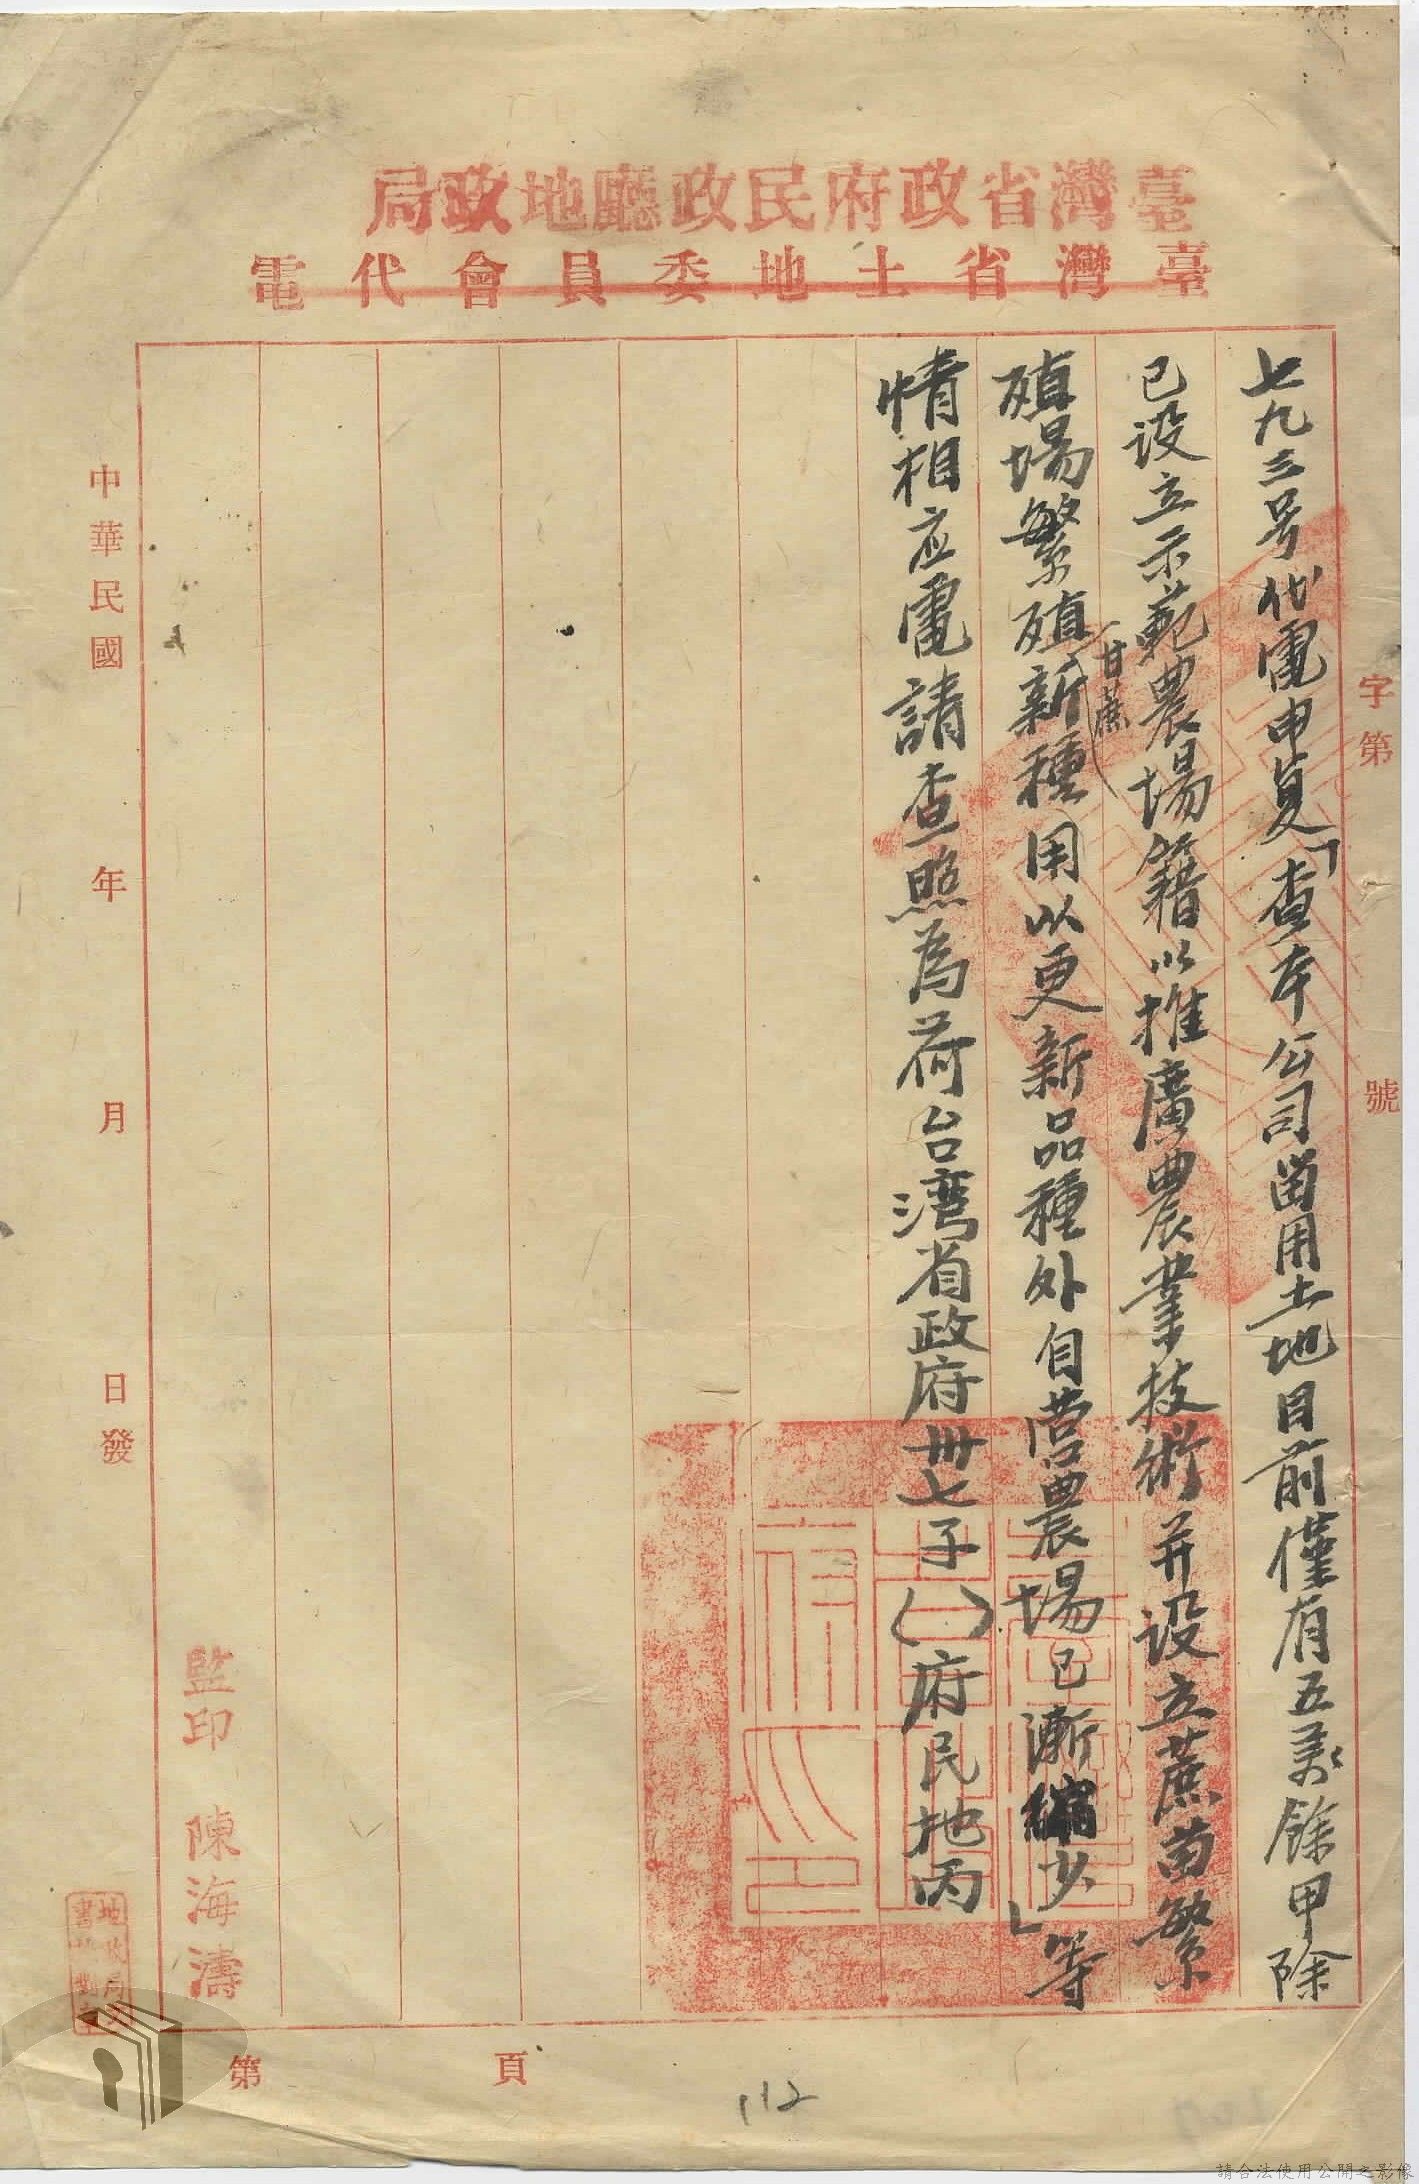 臺灣省政府民政廳地政局
臺灣省土地委員會代電
字第 號
七九三号代電申复「查本公司留用土地目前僅有五萬餘甲除
已設立示範農場籍以推廣農業技術并設立蔗苗繁
殖場繁殖新種(甘蔗)用以更新品種外自营農場已漸縮少」等
情相应電請查照為荷台湾省政府卅七子( )府民地丙
監印 陳海濤
中華民國 年 月 日發
第 頁
112
請合法使用公開之影像